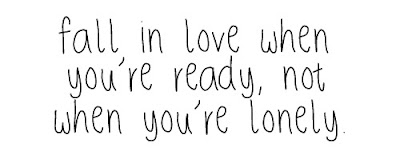 fall in love when
you're ready, not
when you're lonely.